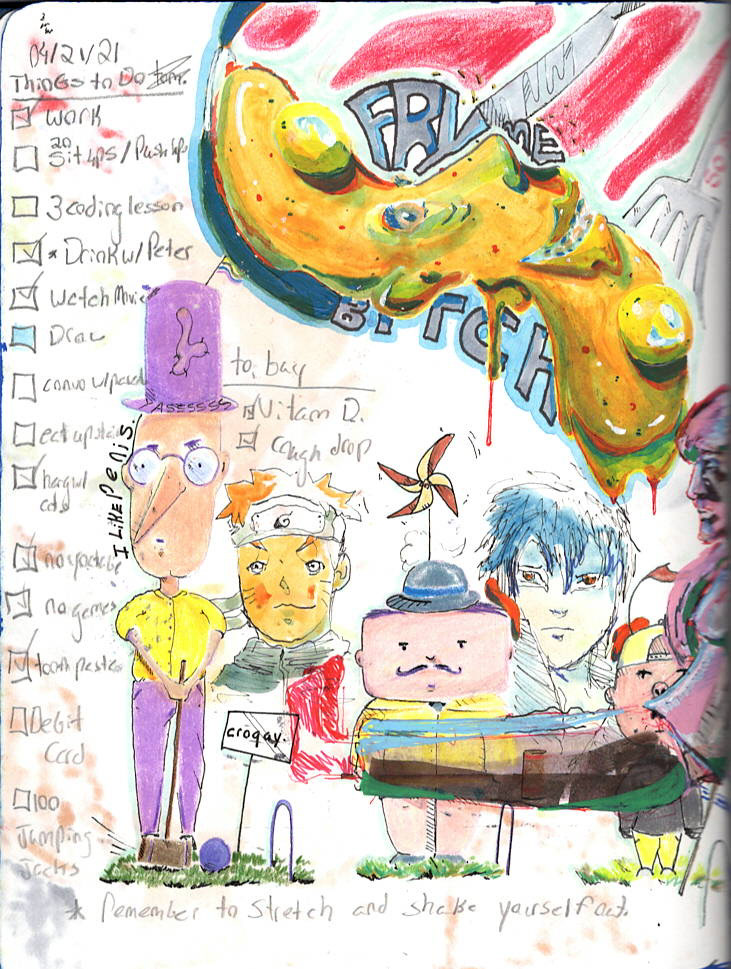 04/21/21
Things to Do
work
20
Sit ups / Push ups
3 coding lesson
* Drink w/ Peter
Watch Movie
Draw
convo w/
eat upstairs
hang w/
cats
no youtube
no games
tooth paste
Debit
Card
100
Jumping
Jacks
to buy
Vitam D.
cough drop
FRY ME
BITCH
ASESSSS
I LIKE PENIS.
croqay.
* Remember to Stretch and shake yourself out.